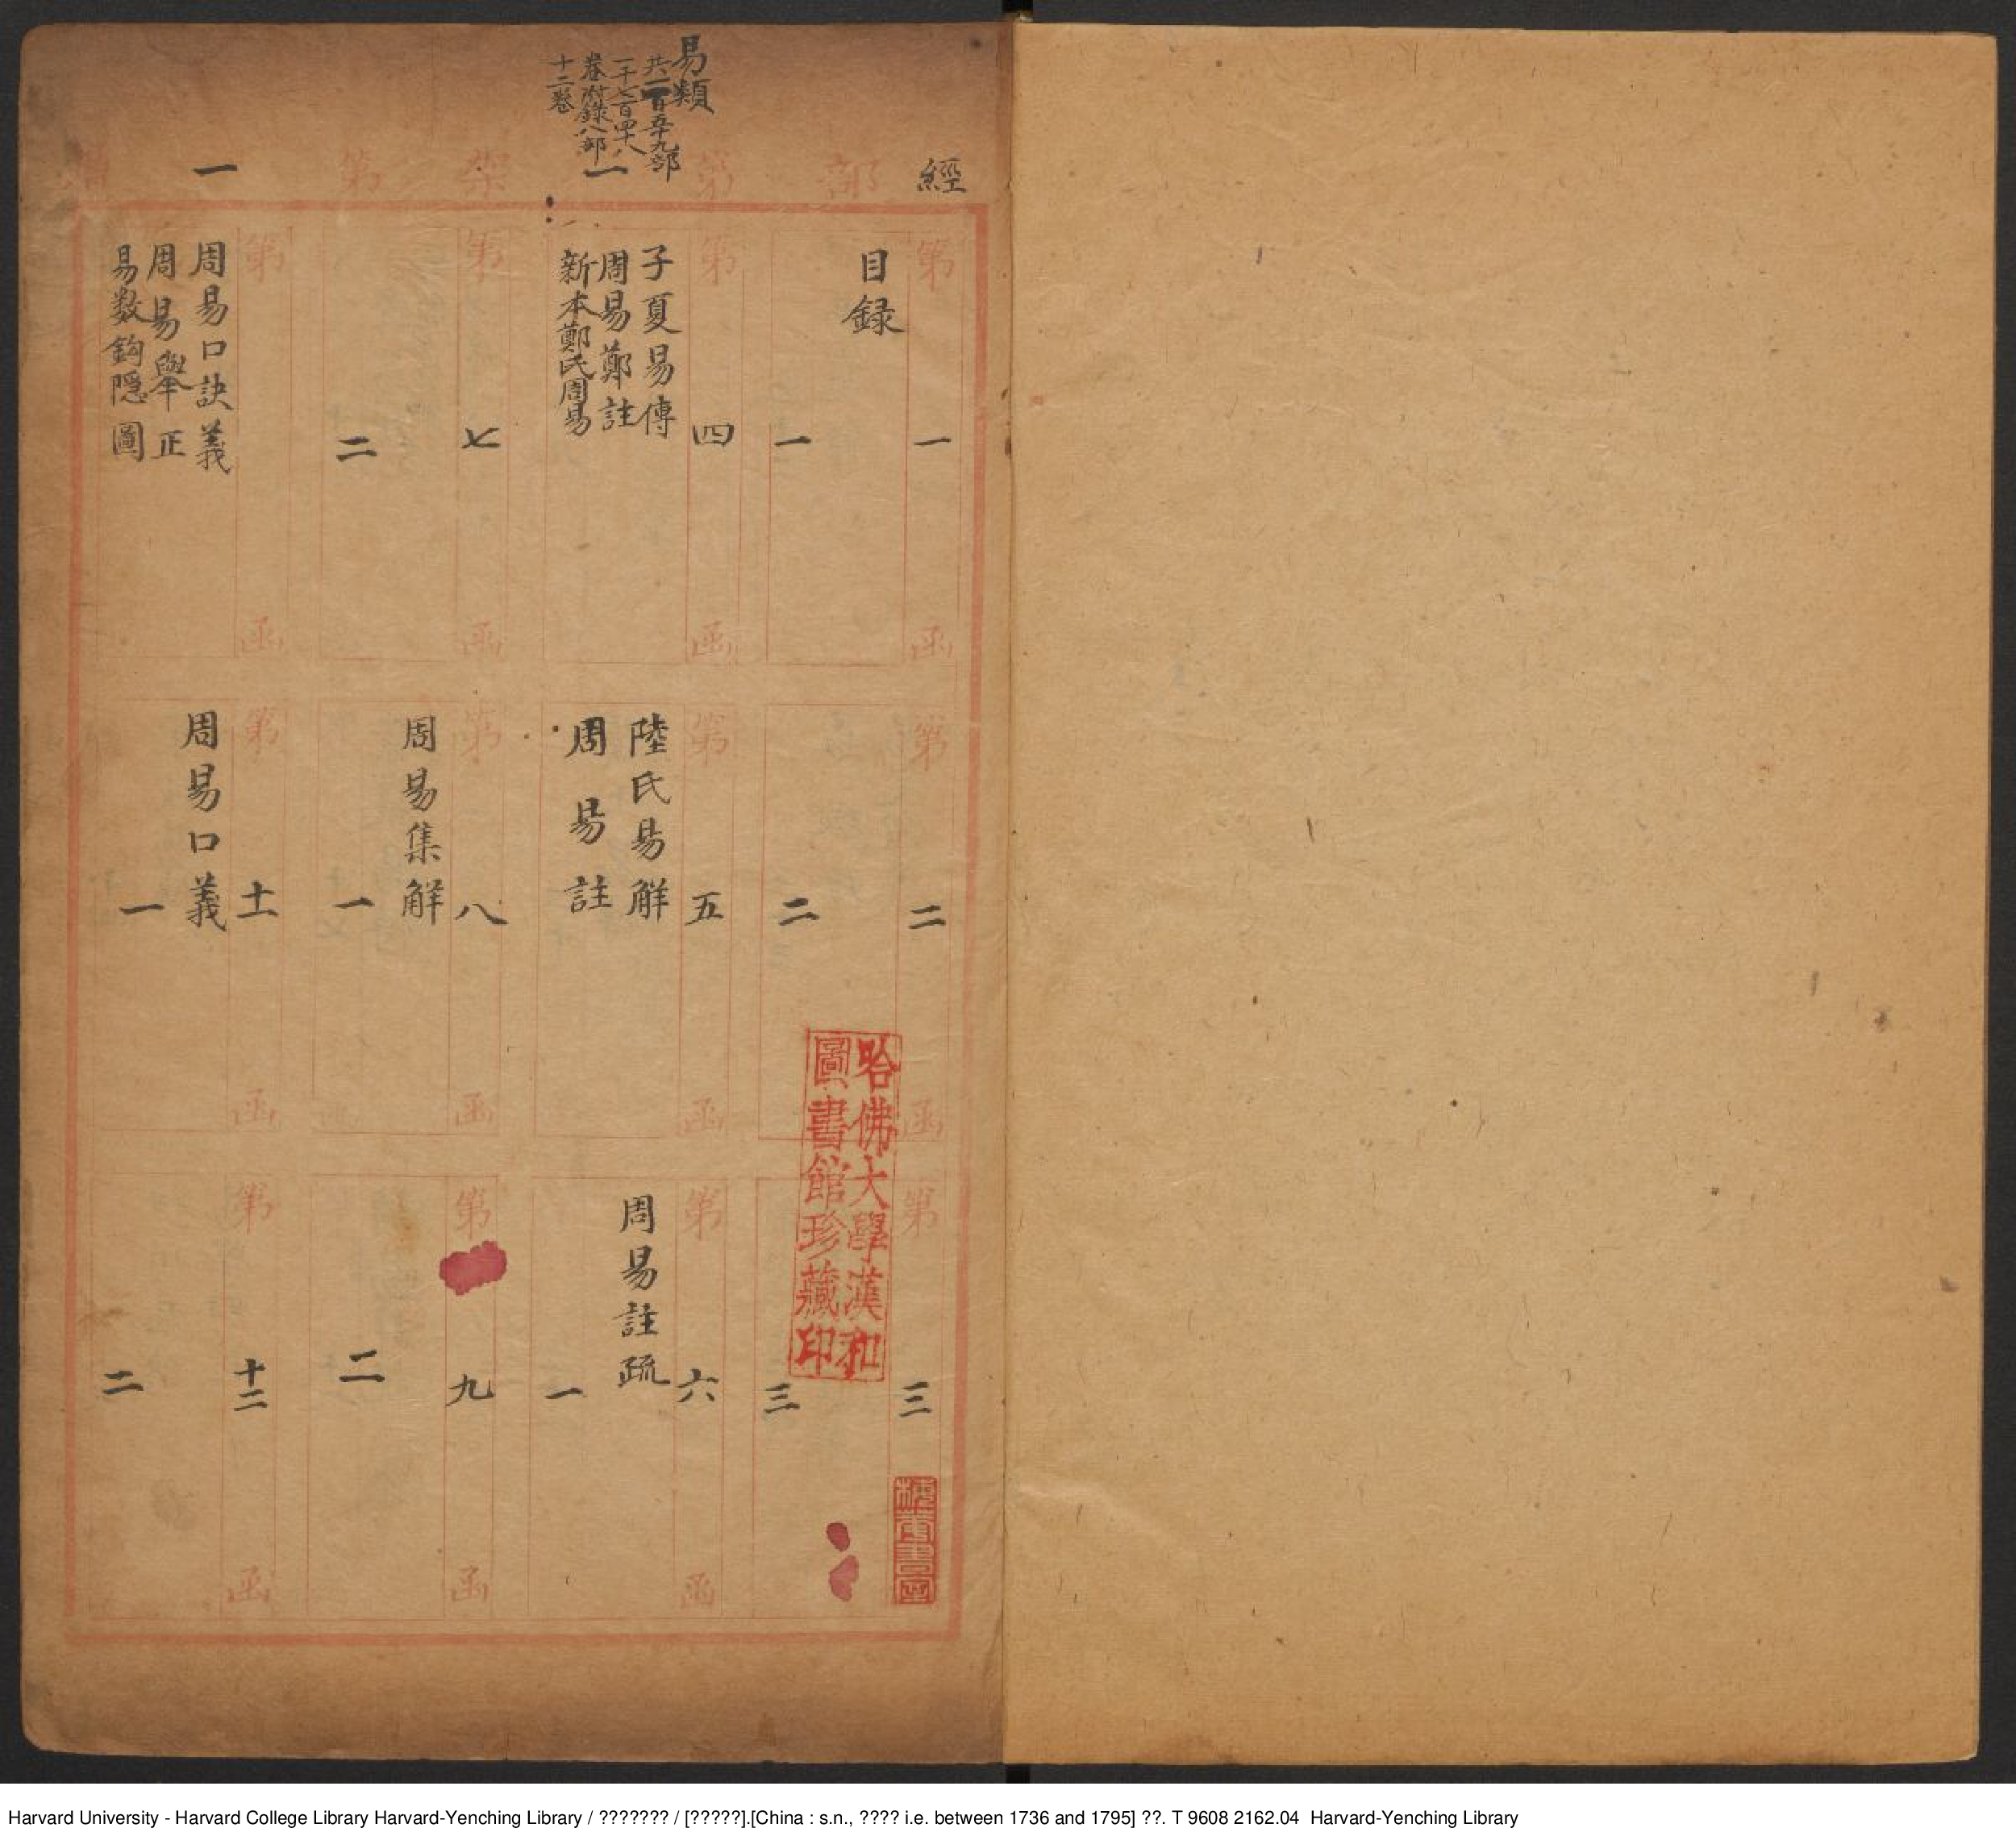 經部第一架第一層
易類
共一百五十九部
一千七百四十八
卷附錄八部
十二卷
第一函
目録
一
第二函
二
第三函
三
第四函
子夏易傳
周易鄭註
新本鄭氏周易
第五函
陸氏易解
周易註
第六函
周易註疏
一
第七函
二
第八函
周易集解
一
第九函
二
第函
周易口訣義
周易舉正
易数鈎隠圖
第十一函
周易口義
一
第十二函
二
哈佛大學漢和
圖書館珍藏印
Harvard University - Harvard College Library Harvard-Yenching Library / ??????? / [?????].[China : s.n., ???? i.e. between 1736 and 1795] ??. T 9608 2162.04  Harvard-Yenching Library